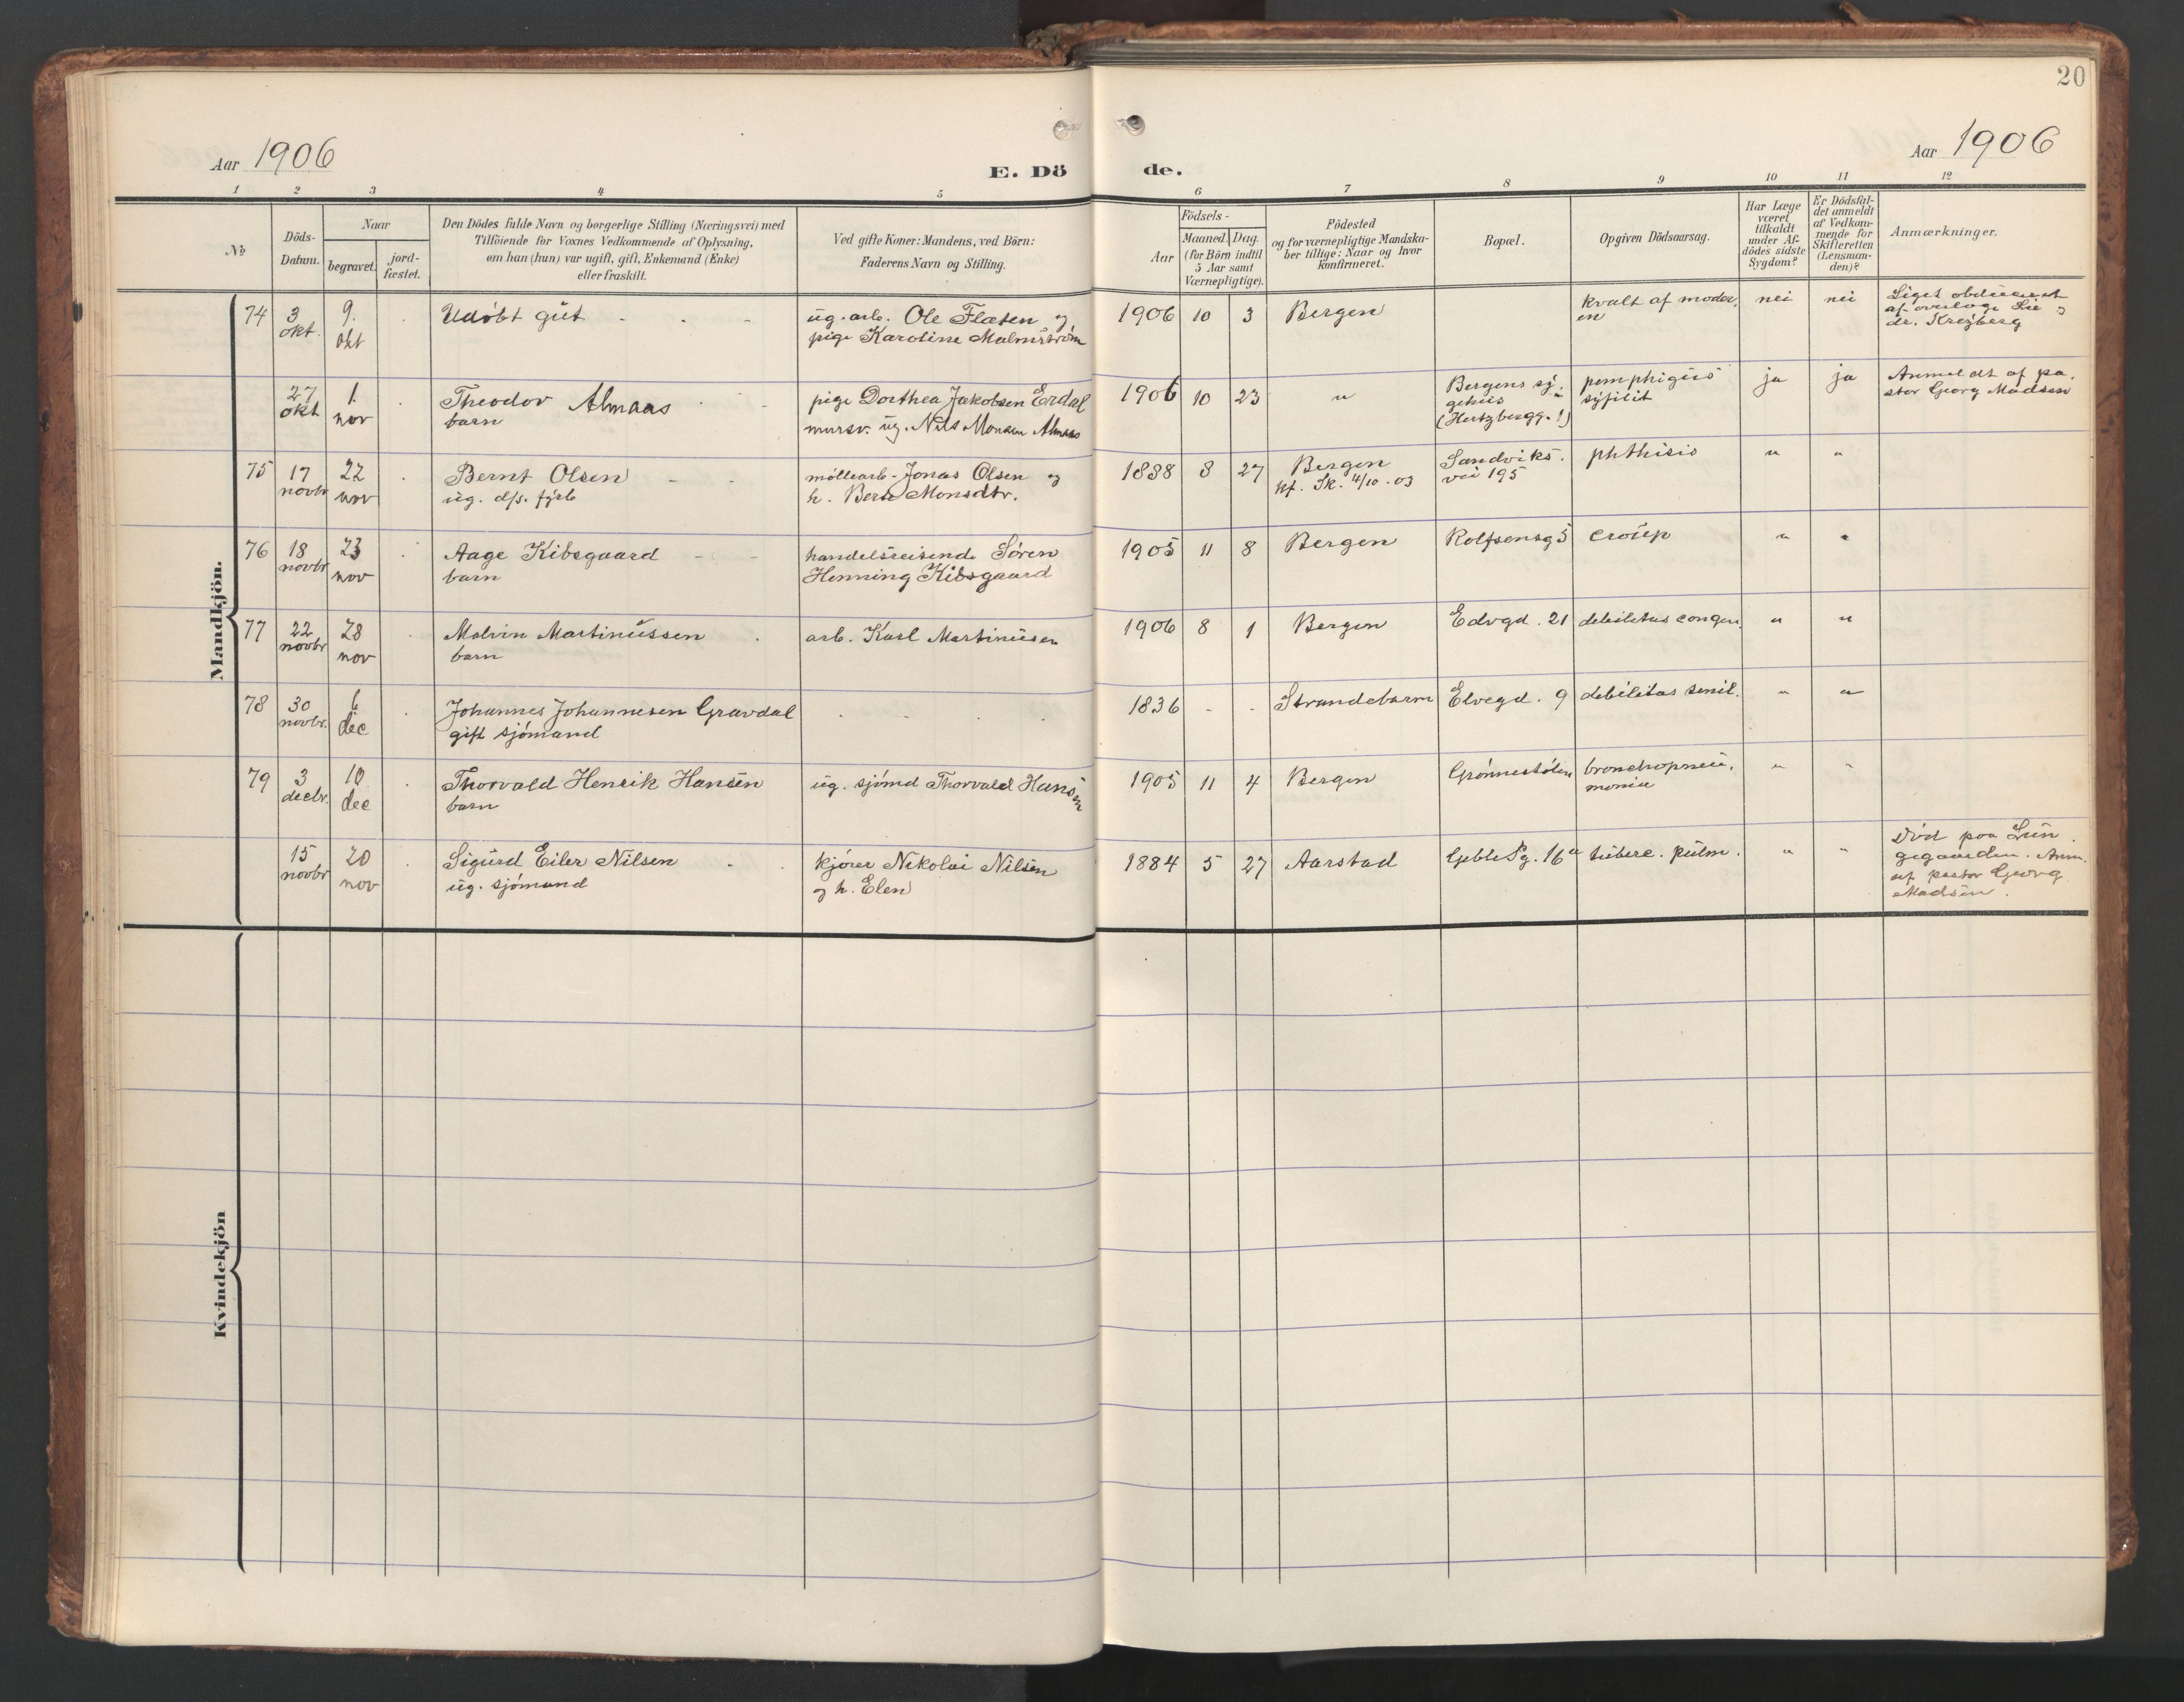 20
Aar 1906
E. Dö de.
Aar 1906
1 2 3 4 5 6 7 8 9 10 11 12
No
Döds-
Datum.
Naar
begravet.
jord-
fæstet.
Den Dödes fulde Navn og borgerlige Stilling (Næringsvei) med
Tilföiende for Voxnes Vedkommende af Oplysning,
om han (hun) var ugift, gift, Enkemand (Enke)
eller fraskilt.
Ved gifte Koner: Mandens, ved Börn:
Faderens Navn og Stilling.
Födsels-
Aar
Maaned.
Dag.
(for Börn indtil
5 Aar samt
Værnepligtige).
Födested
og for værnepligtige Mandska-
ber tillige: Naar og hvor
konfirmeret.
Bopæl.
Opgiven Dödsaarsag.
Har Læge
været
tilkaldt
under Af-
dödes sidste
Sygdom?
Er Dödsfal-
det anmeldt
af Vedkom-
mende for
Skifteretten
(Lensman-
den)?
Anmærkninger.
Mandkjön.
74
3
okt.
9.
okt
Udøbt gut
ug. arb. Ole Flæten og
pige Karoline Malmstrøm
1906 10 3
Bergen
kvalt af moder,
en
nei
nei
Liget obduceret
af overlæge Lie og
dr. Kreyberg
27
okt
1.
nov
Theodor Almaas
barn
pige Dorthea Jakobsen Erdal
mursv. ug. Nils Monsen Almaas
1906 10 23
"
Bergens sy,
gehus
(Hertzbergg. 1)
pemphigus
syfilit
ja
ja
Anmeldt af pa,
stor Georg Madsen
75
17
novbr
22
nov
Bernt Olsen
ug. d/s. fyrb
møllearb. Jonas Olsen og
h. Berte Monsdtr.
1888 8 27
Bergen
kf. Sk. 4/10. 03
Sandviks.
vei 195
phthisis
"
"
76
18
novbr
23
nov
Aage Kibsgaard
barn
handelsreisende Søren
Henning Kibsgaard
1905 11 8
Bergen
Rolfsensg 5
croup
"
"
77
22
novbr
28
nov
Malvin Martinussen
barn
arb. Karl Martinusen
1906 8 1
Bergen
Edvgd. 21
debilitas congen,
"
"
78
30
novbr.
6
dec
Johannes Johannesen Gravdal
gift sjømand
1836 - -
Strandebarm
Elvegd. 9
debilitas senil.
"
"
79
3
decbr.
10
dec
Thorvald Henrik Hansen
barn
ug. sjømd Thorvald Hansen
1905 11 4
Bergen
Grønnestølen
bronchopneu,
monia
"
"
15
novbr
20
nov
Sigurd Eiler Nilsen
ug. sjømand
kjører Nikolai Nilsen
og h. Elen
1884 5 27
Aarstad
Geble Pg. 16a
tuberc. pulm.
"
"
Død paa Lun
gegaarden. Anm.
af pastor Georg
Madsen.
Kvindekjön